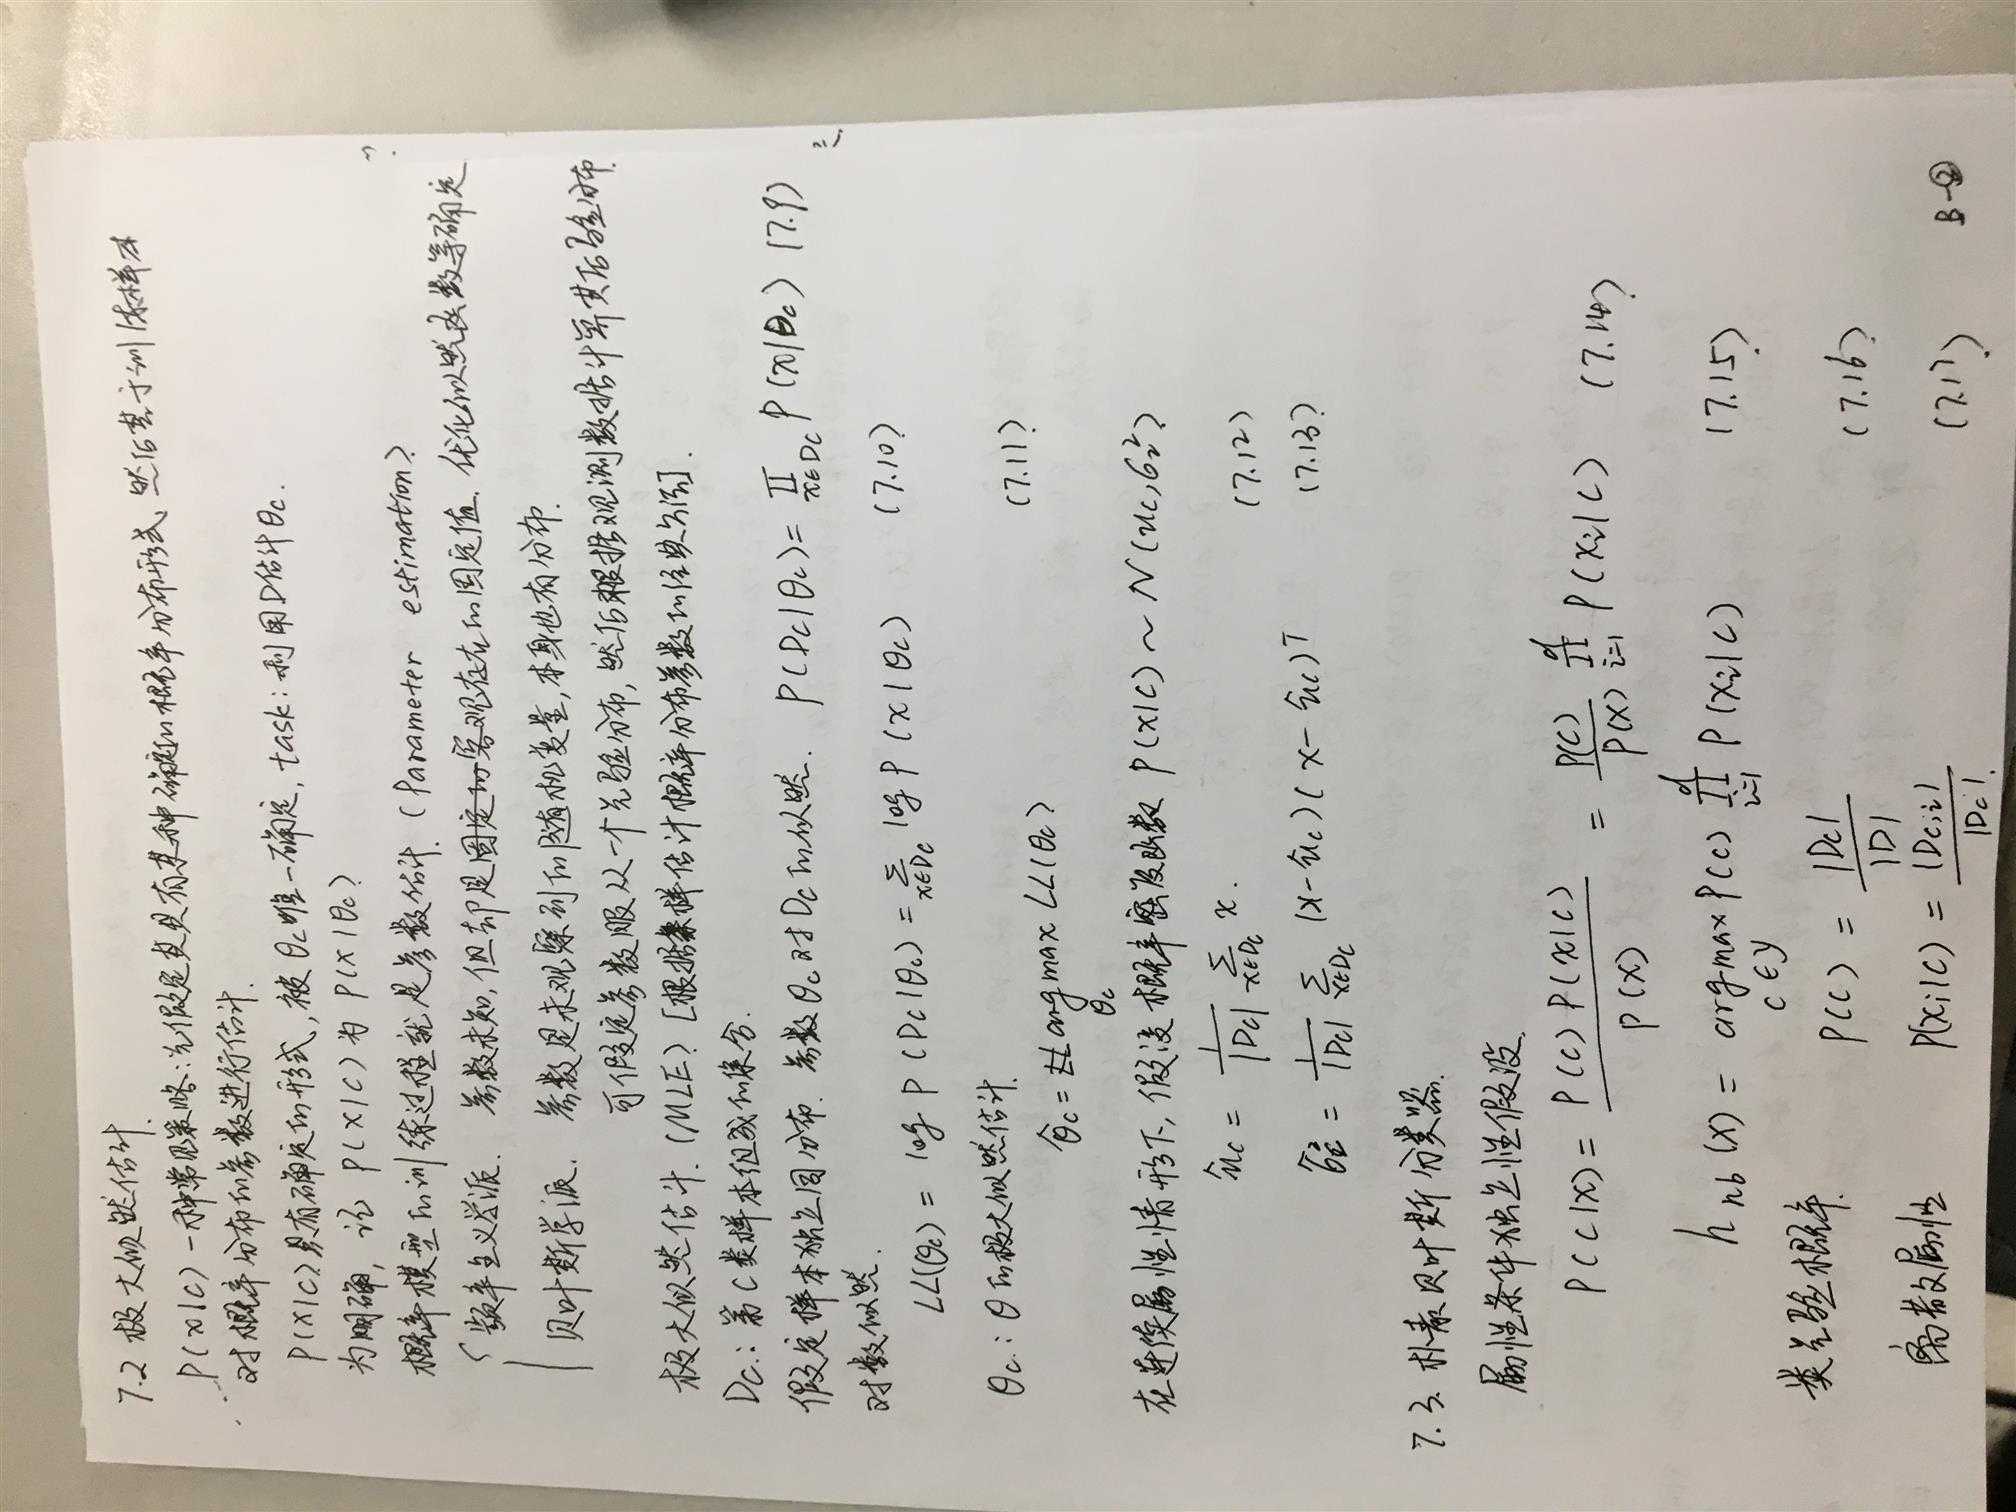 7.2 极大似然估计.
P(x|c) 一种常用策略:先假定其具有某种确定的概率分布形式,然后基于训练样本
对概率分布的参数进行估计.
P(x|c)具有确定的形式,被θc唯一确定,task:利用D估计θc.
为明确, 记 P(x|c) 为 P(x|θc)
概率模型的训练过程就是参数估计.(Parameter estimation)
频率主义学派. 参数未知,但却是客观存在的固定值. 优化似然函数等确定
贝叶斯学派. 参数是未观察到的随机变量,本身也有分布.
可假定参数服从一个先验分布,然后根据观测数据计算其后验分布.
极大似然估计.(MLE)[根据采样估计概率分布参数的经典方法].
Dc:第C类样本组成的集合.
假定样本独立同分布. 参数θc对Dc的似然. P(Dc|θc)=∏x∈Dc P(x|θc) (7.9)
对数似然.
LL(θc) = log P(Dc|θc) = ∑x∈Dc log P(x|θc) (7.10)
θc:θ的极大似然估计.
θ̂c = argmax θc LL(θc) (7.11)
在连续属性情形下,假设概率密度函数 P(x|c) ~ N(μc,σc²)
μ̂c = 1/|Dc| ∑x∈Dc x. (7.12)
σ̂c² = 1/|Dc| ∑x∈Dc (x-μ̂c)(x-μ̂c)T (7.13)
7.3. 朴素贝叶斯分类器.
属性条件独立性假设.
P(c|x) = P(c)P(x|c)/P(x) = P(c)/P(x) ∏i=1 d P(xi|c) (7.14)
hnb(x) = argmax c∈y P(c) ∏i=1 d P(xi|c) (7.15)
类先验概率. P(c) = |Dc|/|D| (7.16)
离散属性 P(xi|c) = |Dc,xi|/|Dc|. (7.17)
B-②